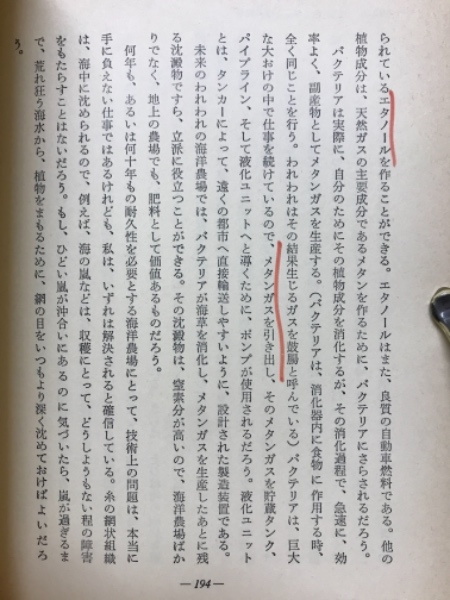 られているエタノールを作ることができる。エタノールはまた、良質の自動車燃料である。他の
植物成分は、天然ガスの主要成分であるメタンを作るために、バクテリアにさらされるだろう。
バクテリアは実際に、自分のためにその植物成分を消化するが、その消化過程で、急速に、効
率よく、副産物としてメタンガスを生産する。（バクテリアは、消化器内に食物に作用する時、
全く同じことを行う。われわれはその結果生じるガスを鼓腸と呼んでいる）バクテリアは、巨大
な大おけの中で仕事を続けているので、メタンガスを引き出し、そのメタンガスを貯蔵タンク、
パイプライン、そして液化ユニットへと導くために、ポンプが使用されるだろう。液化ユニット
とは、タンカーによって、遠くの都市へ直接輸送しやすいように、設計された製造装置である。
未来のわれわれの海洋農場では、バクテリアが海草を消化し、メタンガスを生産したあとに残
る沈澱物ですら、立派に役立つことができる。その沈澱物は、窒素分が高いので、海洋農場ばか
りでなく、地上の農場でも、肥料として価値あるものだろう。
何年も、あるいは何十年もの耐久性を必要とする海洋農場にとって、技術上の問題は、本当に
手に負えない仕事ではあるけれども、私は、いずれは解決されると確信している。糸の網状組織
は、海中に沈められるので、例えば、海の嵐などは、収穫にとって、どうしようもない程の障害
をもたらすことはないだろう。もし、ひどい嵐が沖合いにあるのに気づいたら、嵐が過ぎるま
で、荒れ狂う海水から、植物をまもるために、網の目をいつもより深く沈めておけばよいだろ
う。
—194—